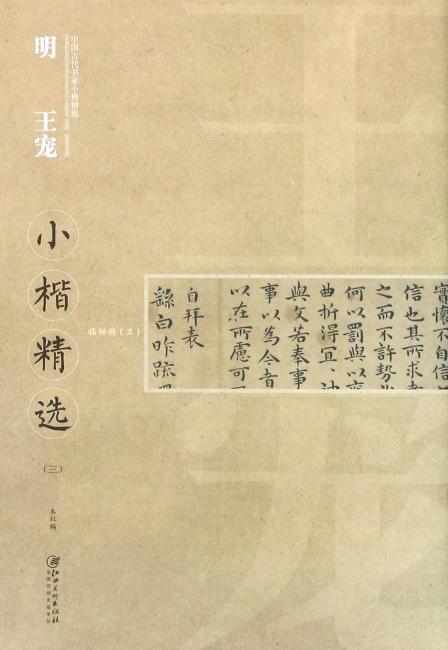 中国古代书家小楷精选
明 王宠
小楷精选
(三)
临帖册(上)
本社编
江西美术出版社
全国百佳出版单位
實懷不自信
信也其所求
之而不許勢
何以罰與以
曲折得宜
與文若奉事
事以為今者
以在所慮可
自拜表
繇白昨疏